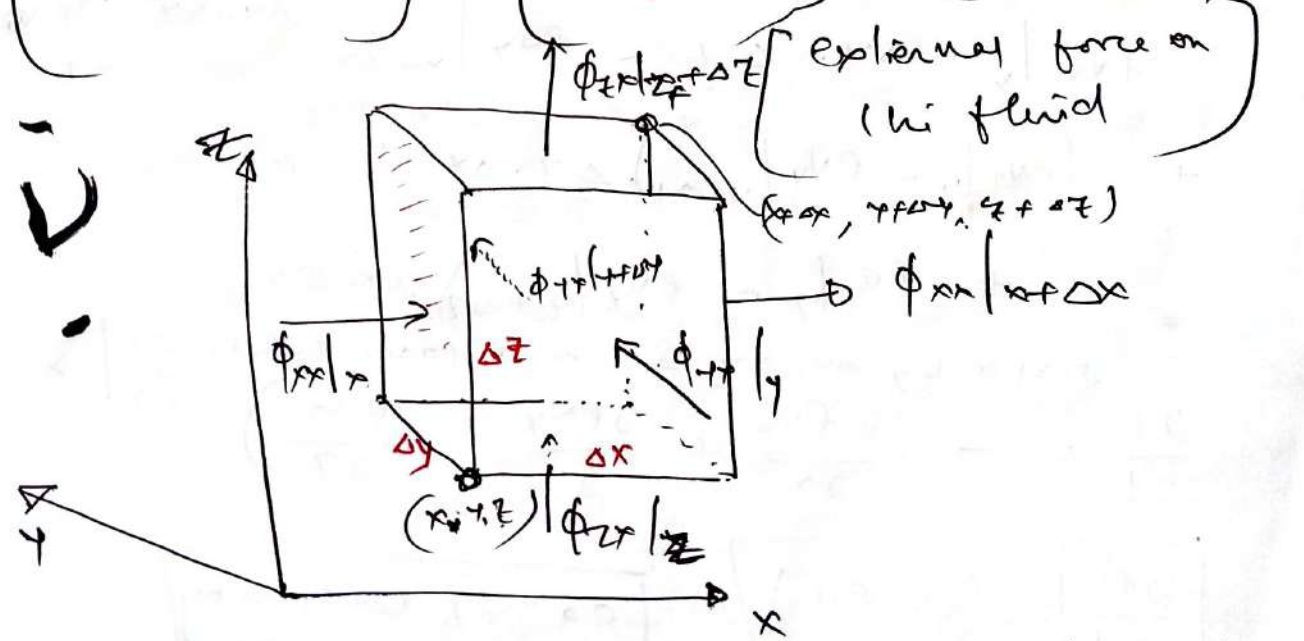 external force on
the fluid
ϕzx|z+Δz
z
(x+Δx, y+Δy, z+Δz)
ϕyx|y+Δy
ϕxx|x+Δx
ϕxx|x
Δz
ϕyx|y
Δy
Δx
(x, y, z)
ϕzx|z
y
x